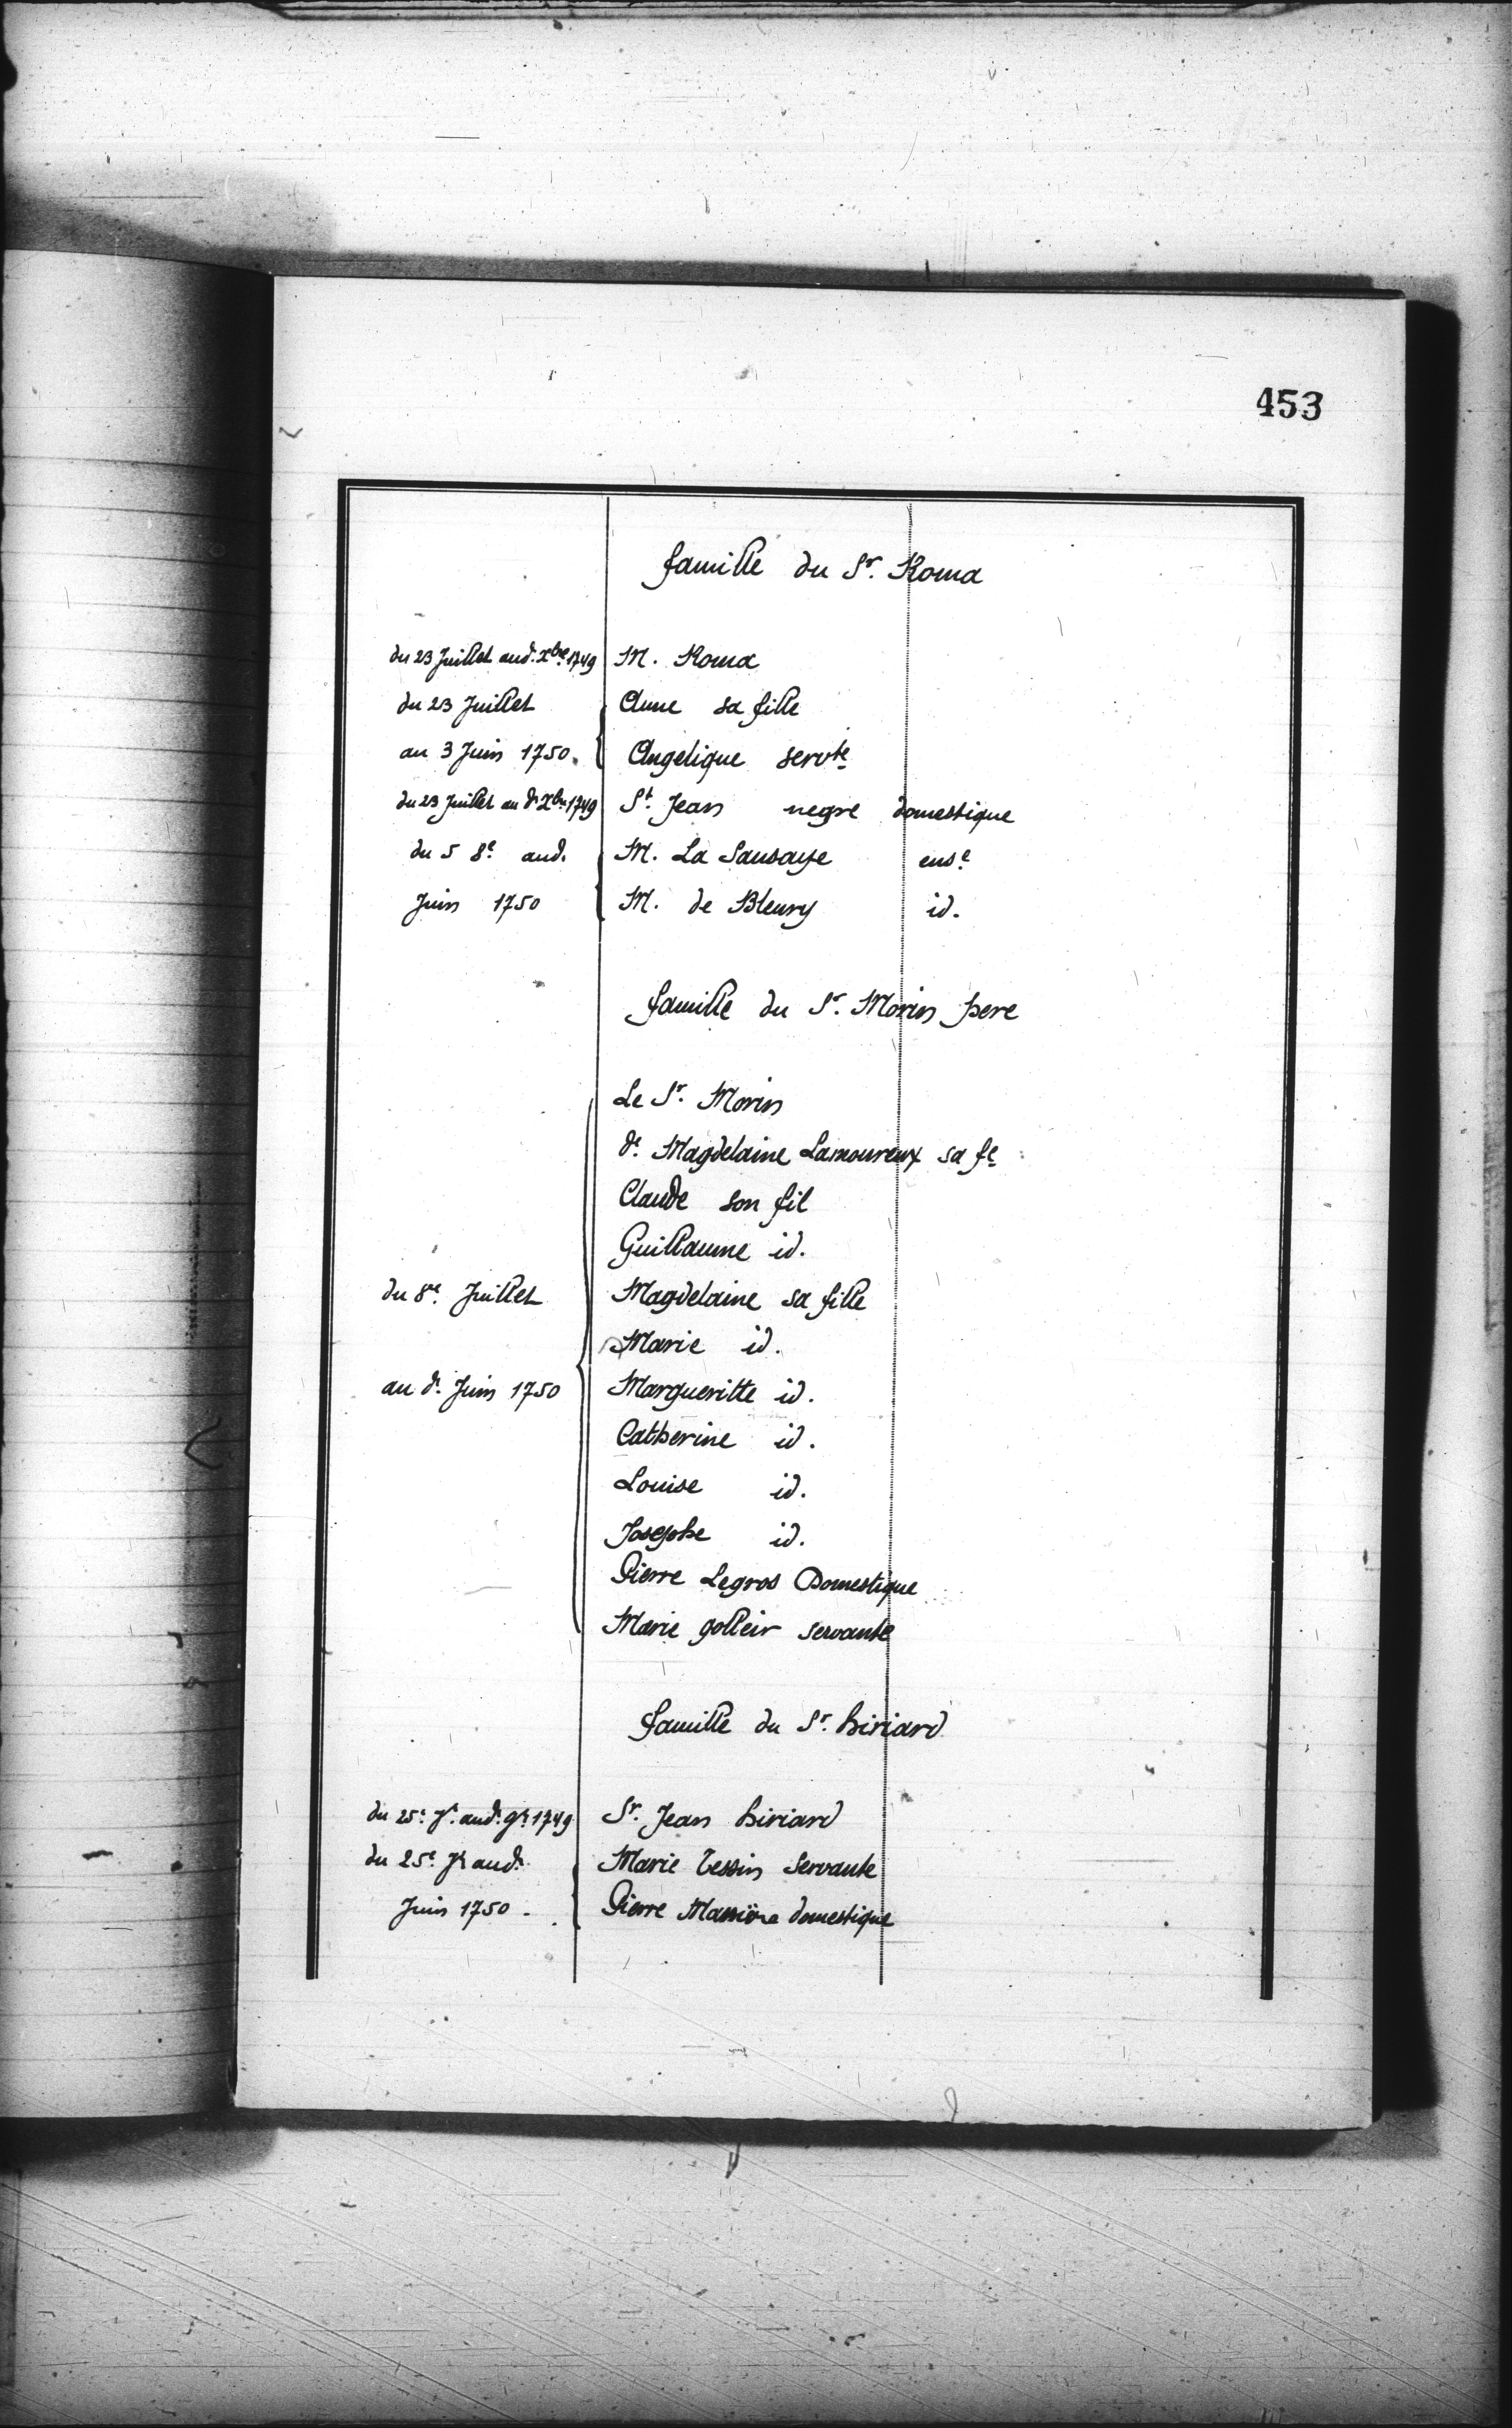 453
famille du Sr. Roma
du 23 Juillet aud. Xbre 1749 M. Roma
du 23 Juillet Anne sa fille
au 3 Juin 1750. Angelique servte
du 23 Juillet au d. Xbre 1749 St. Jean negre domestique
du 5 8e aud. M. La Sausaye ense
Juin 1750 M. de Bleury id.
famille du Sr. Morin pere
Le Sr. Morin
de. Magdelaine Lamoureux sa fe
Claude son fil
Guillaume id.
du 8e. Juillet Magdelaine sa fille
Marie id.
au d. Juin 1750 Margueritte id.
Catherine id.
Louise id.
Josephe id.
Pierre Legros Domestique
Marie golleir servante
famille du Sr. hiriard
du 25e. Jt. aud. 9re 1749 Sr. Jean hiriard
du 25e. Jt aud. Marie Tessin Servante
Juin 1750. Pierre domestique